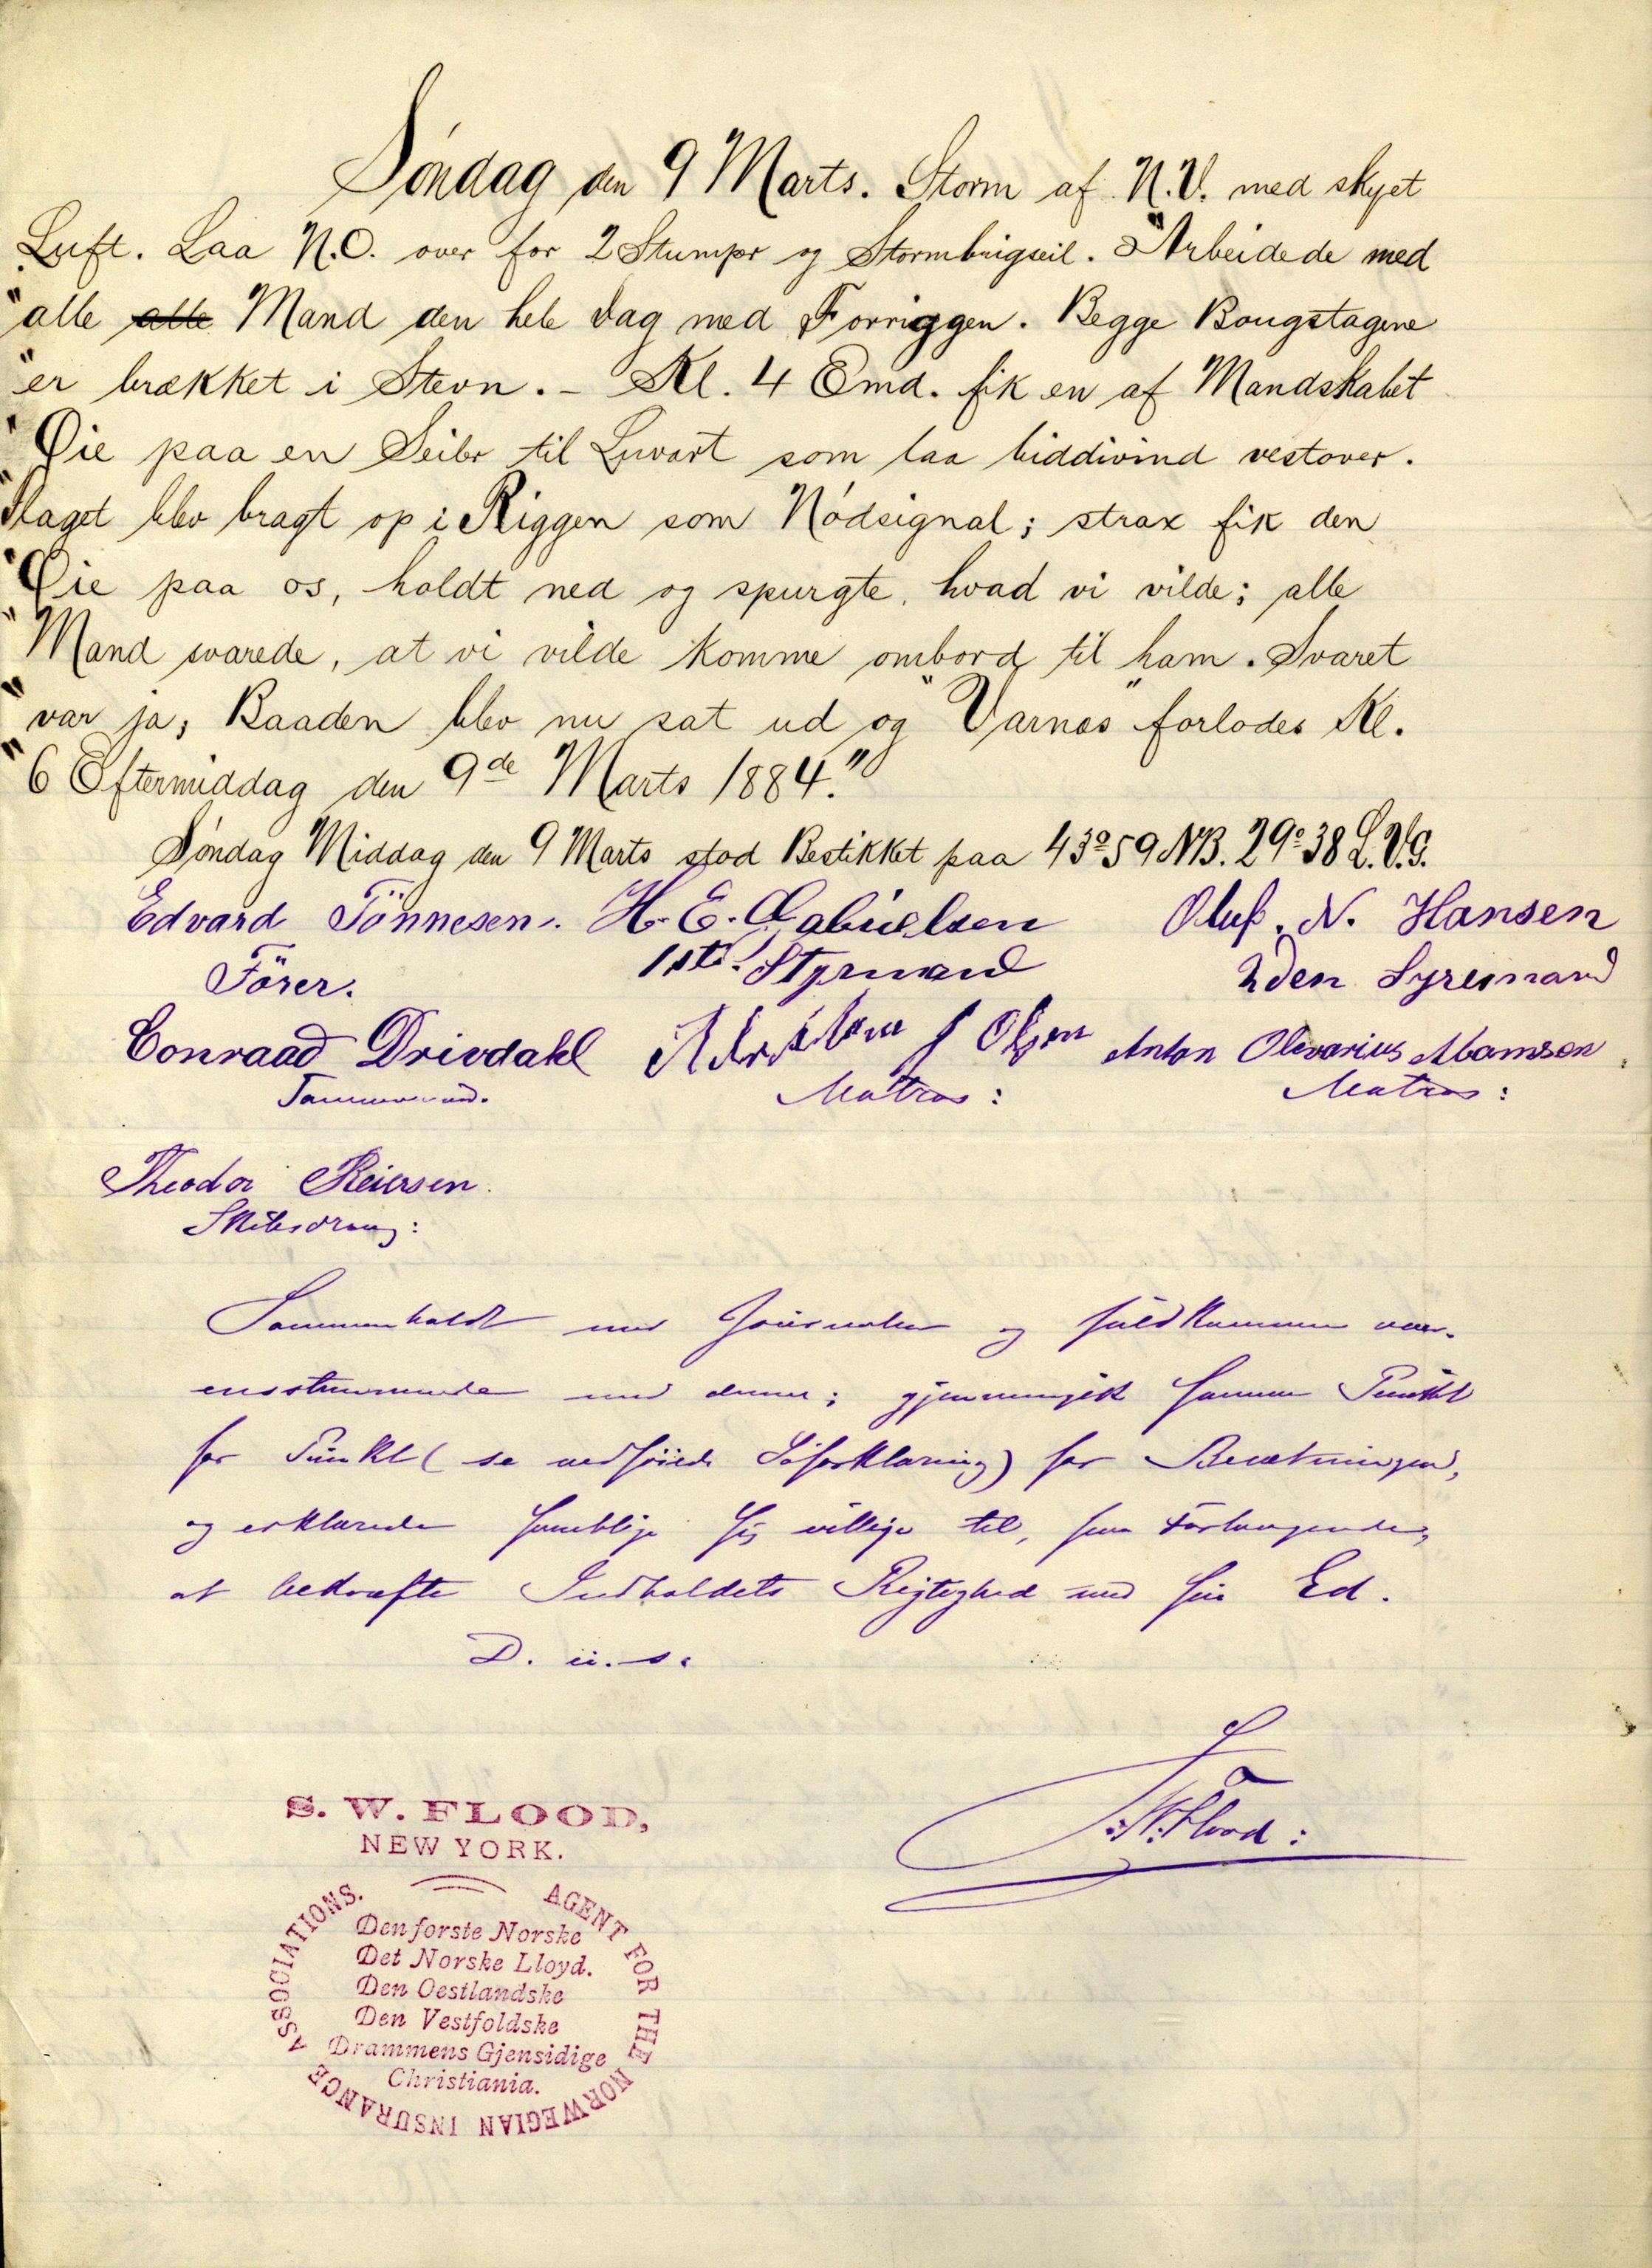 Søndag den 9 Marts. Storm af N.V. med skyet
Luft. Laa N.O. over for 2 Stumper og Stormbrigseil. "Arbeidede med
"alle alle Mand den hele Dag med Forriggen. Begge Bougstagene
"er brækket i Stevn. – Kl. 4 Emd. fik en af Mandskabet
"Øie paa en Seiler til Luvart som laa biddivind vestover.
"Flaget blev bragt op i Riggen som Nødsignal; strax fik den
"Øie paa os, holdt ned og spurgte, hvad vi vilde; alle
"Mand svarede, at vi vilde komme ombord til ham. Svaret
"var ja; Baaden blev nu sat ud og "Varnæs" forlodes Kl.
"6 Eftermiddag den 9de Marts 1884."
Søndag Middag den 9 Marts stod Bestikket paa 43º59 NB. 29º38 L.V.G.
Edvard Tönnesen. H. E. Gabrielsen Oluf. N. Hansen
Förer. 1ste Styrmand 2den Syresmand
Conraad Drivdahl J Olsen Anton Olevarius Mamsen
Tømmermand. Matros: Matros:
Theodor Reiersen
Skibsdreng:
Sammenholdt med Journalen og fuldkommen over-
ensstemmende med denne; gjennemgik samme Punkt
for Punkt (se vedföiede Söforklaring) for Besætningen,
og erklærede samtlige sig villige til, paa Forlangende,
at bekræfte Indholdets Rigtighed med sin Ed.
D. u. s.
S. W. Flood:
S. W. FLOOD,
NEW YORK.
AGENT FOR THE NORWEGIAN INSURANCE ASSOCIATIONS.
Den forste Norske
Det Norske Lloyd.
Den Oestlandske
Den Vestfoldske
Drammens Gjensidige
Christiania.